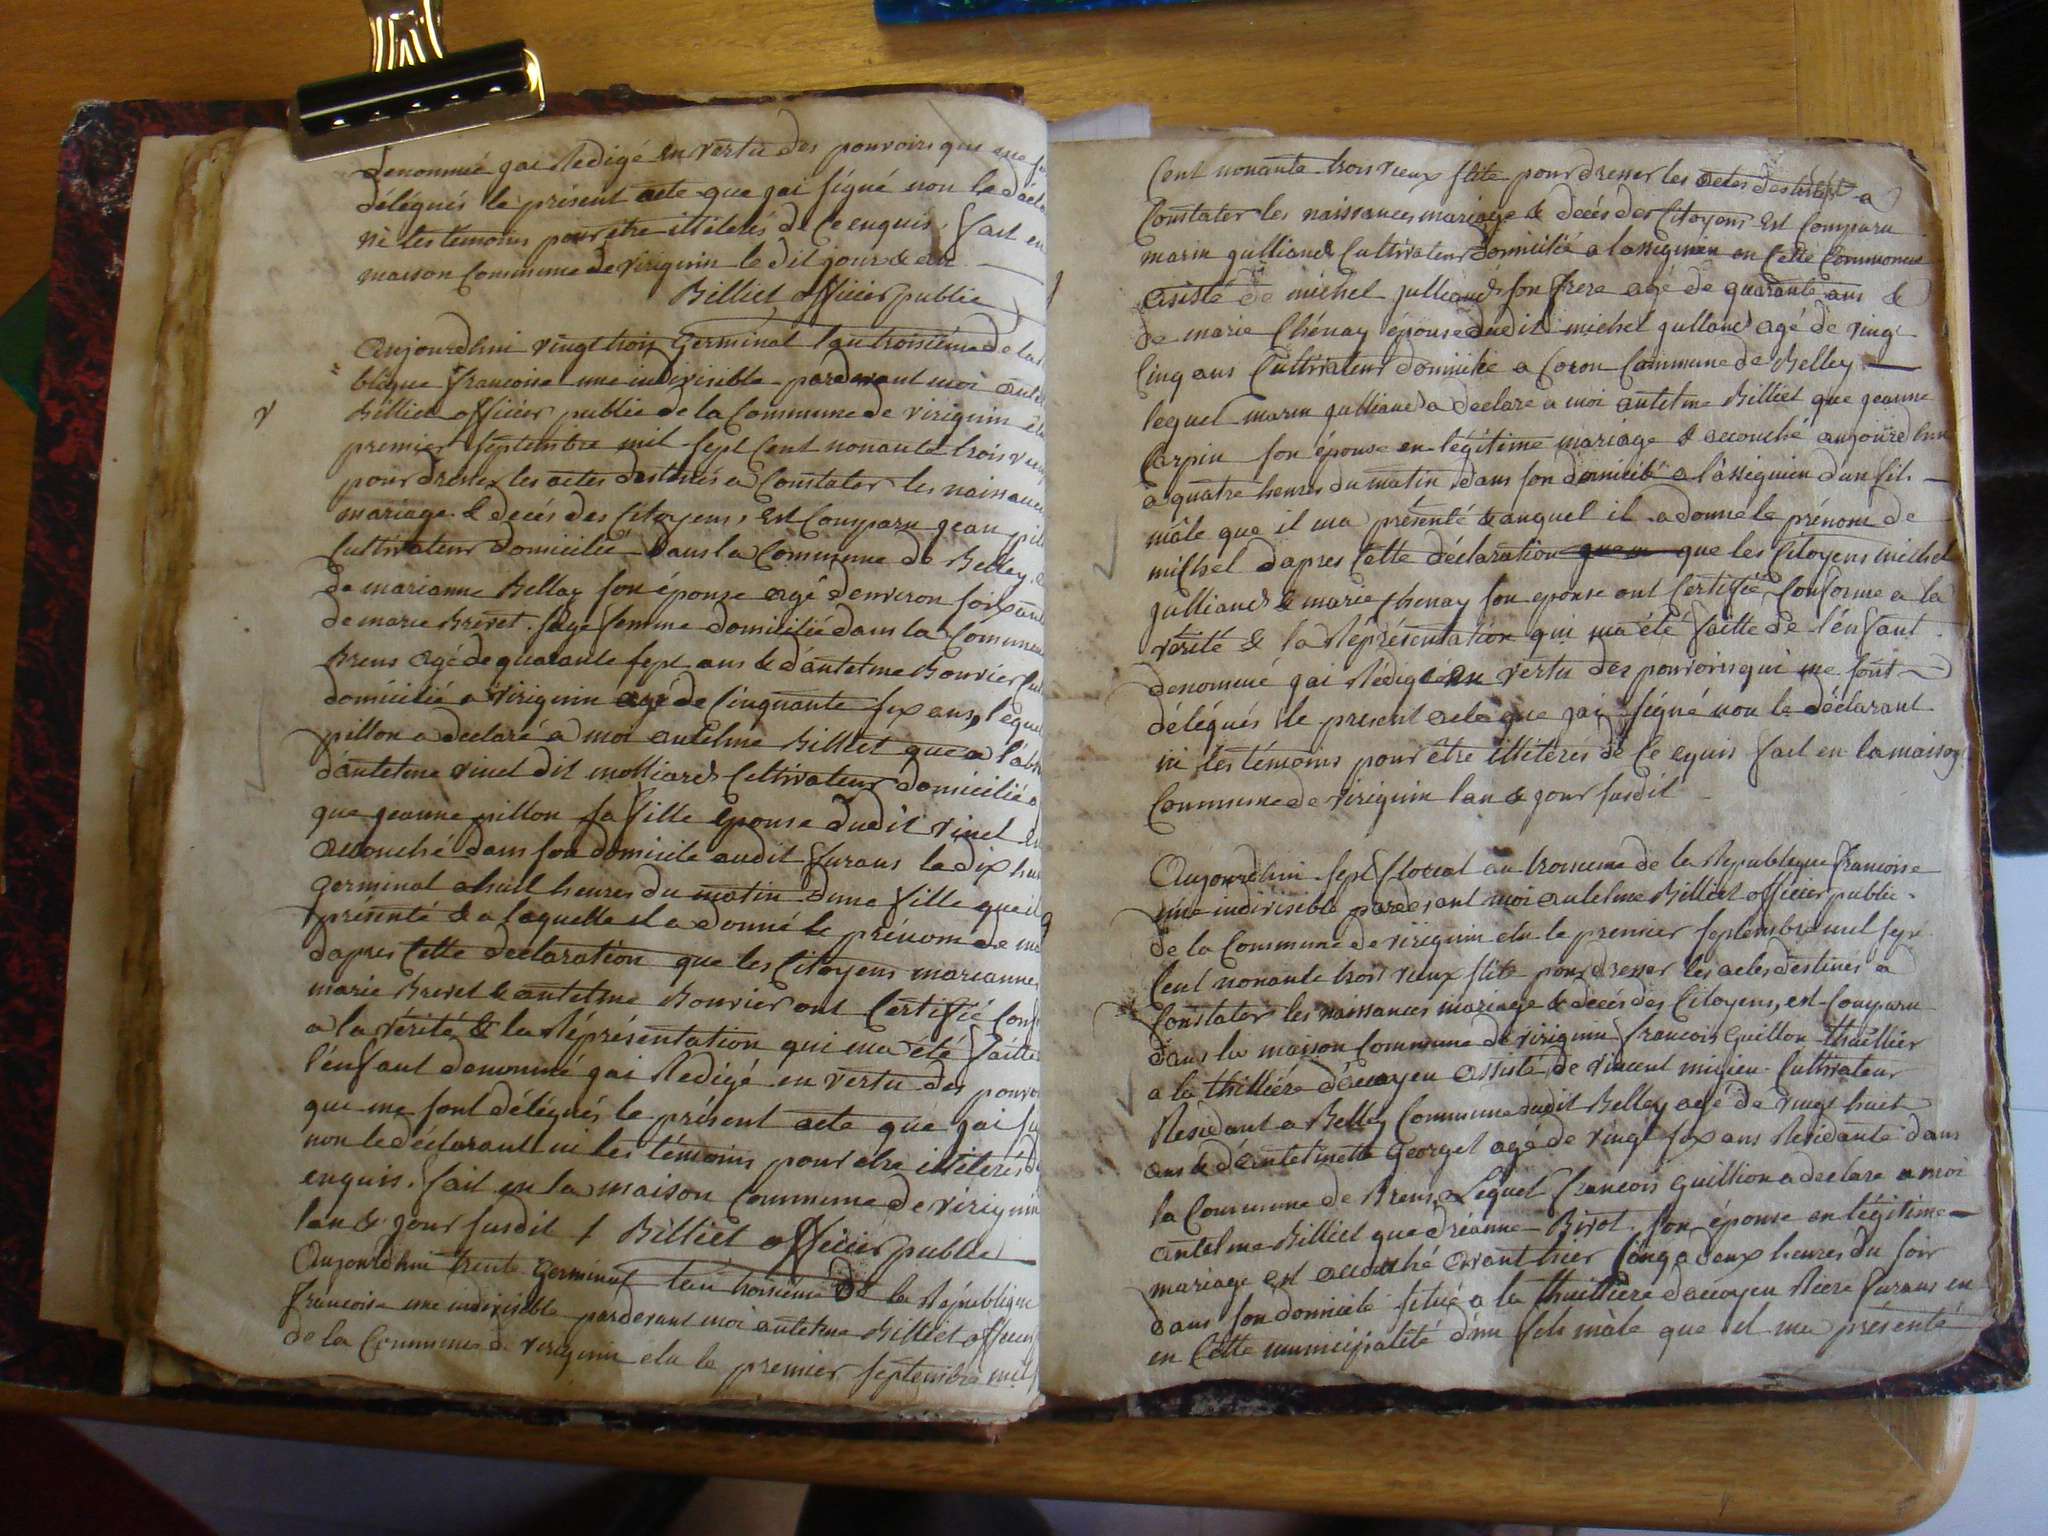 denommé jai Redigé en vertu des pouvoirs qui me
délégués le présent acte que jai signé non le
ni les témoins pour etre illiterés de ce enquis. fait en
maison Commune de virignin le dit jour & an
Billiet officier public
Aujourdhui vingt trois Germinal lan troisième de la
blique francoise une indivisible pardevant moi
Billiet officier public de la Commune de virignin
premier septembre mil sept Cent nonante trois
pour dresser les actes destinés a Constater les
mariage & decés des Citoyens, Est Comparu jean
Cultivateur domicilié dans la Commune de Belley
de marianne Bellay son épouse agé denviron
de marie Brevet sage femme domicilié dans la Commune
Brens agé de quarante sept ans & dantelme Bouvier
domicilié a virignin agé de Cinquante six ans,
pillon a declaré a moi antelme Billiet que a
dantelme vinet dit molliard Celtivateur domicilié a
que jeanne pillon sa fille épouse dudit vinet
accouché dans son domicile audit furans le dix
germinal a huit heures du matin dune fille
présenté & a laquelle il a donné le prénom de
dapres Cette declaration que les Citoyens marianne
marie Brevet & antelme Bouvier ont Certifié
a la vérité & la Réprésentation qui ma été faitte
lénfant denommé jai Redigé en vertu des
que me sont délégués le présent acte que jai
non le déclarant ni les témoins pour etre illiterés
enquis. fait en la maison Commune de virignin
lan & jour susdit Billiet officier public
Aujourdhui trente Germinal lan troisieme de la République
francoise une indivisible pardevant moi antelme Billiet
de la Commune de virignin elu le premier septembre mil
Cent nonante trois vieux stile pour dresser les actes destinés a
Constater les naissances mariage & decés des Citoyens Est Comparu
marin julliand Cultivateur domicilié a lassignieu en Cette Commune
assisté de michel julliand son frere agé de quarante ans &
de marie Chénay épouse dudit michel julland agé de vingt
Cinq ans Cultivateur domicilié a Coron Commune de Belley
lequel marin julliand a declaré a moi antelme Billiet que jeanne
Carpin son épouse en légitime mariage & accouché aujourdhui
a quatre heures du matin dans son domicile a lassignieu dun fils
mâle que il ma présenté & auquel il a donné le prénom de
michel dapres Cette déclaration que les Citoyens michel
julliand & marie Chenay son épouse ont Certifié Conforme a la
vérité & la Réprésentation qui ma été faitte de lénfant
denommé jai Redigé en vertu des pouvoirs qui me sont
délégués le present acte que jai signé non le déclarant
ni les témoins pour être illiterés de Ce equis fait en la maison
Commune de virignin lan & jour susdit
Aujourdhui sept floreal an troisieme de la Republique francoise
une indivisible pardevant moi antelme Billiet officier public
de la Commune de virignin elu le premier septembre mil sept
Cent nonante trois vieux stile pour dresser les actes destinés a
Constater les naissances mariage & decés des Citoyens, est Comparu
dans la maison Commune de virignin francois Guillon
a la assisté de vincent Cultivateur
Residant a Belley Commune dudit Belley agé de vingt huit
ans & dantelmette Georget agé de vingt six ans Residante dans
la Commune de Brens. Lequel francois Guillion a declaré a moi
antelme Billiet que dréanne son épouse en légitime
mariage est accouché avant hier Cinq a deux heures du soir
dans son domicile situé a la furans en
en Cette municipalité dun fils mâle que il ma présenté